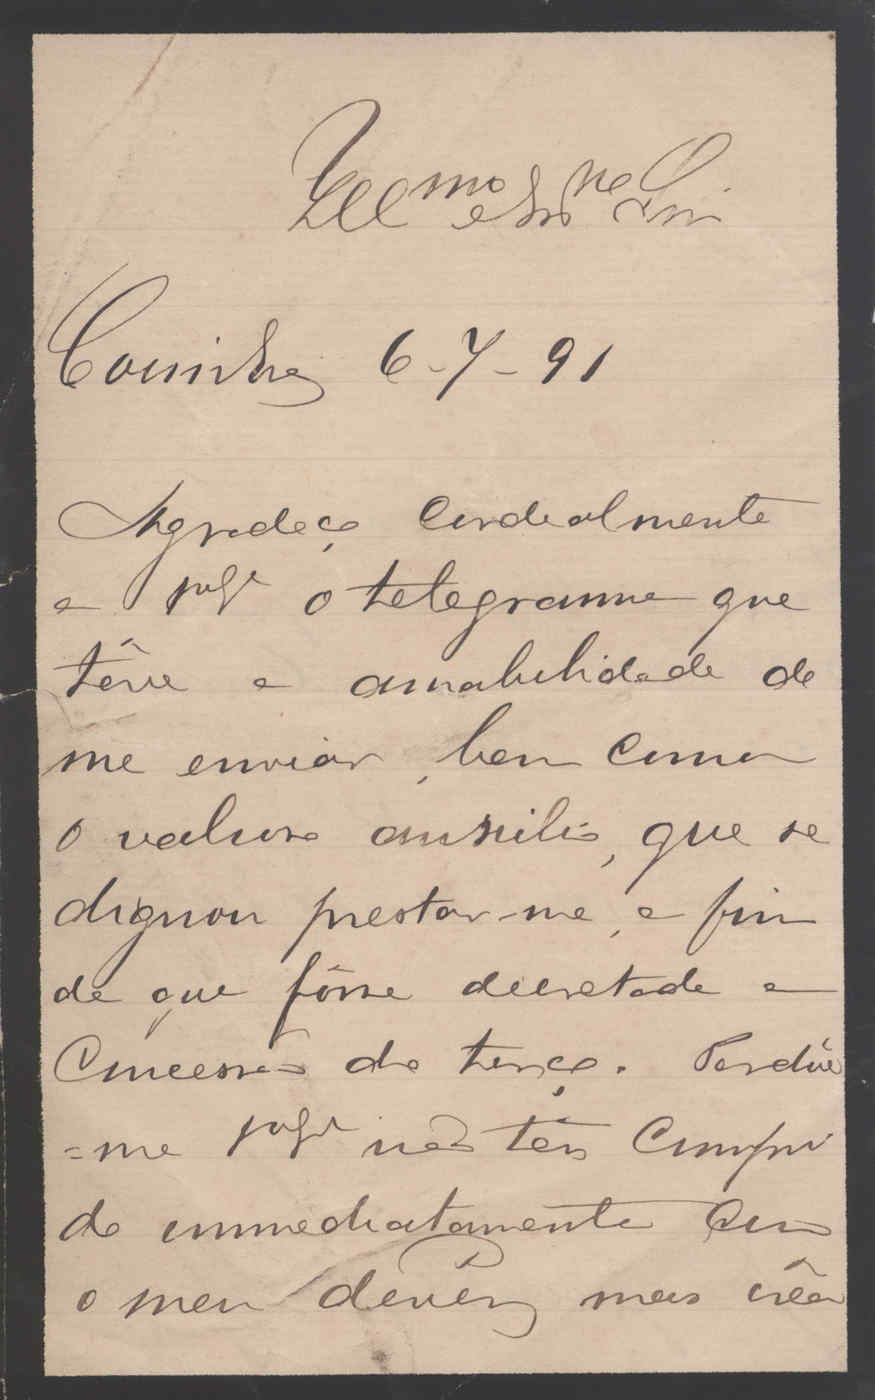 Illmo e Exmo Snr
Coimbra, 6-7-91
Agradeço cordealmente
a o telegramma que
têve a amabilidade de
me enviar, bem como
o valioso auxilio, que se
dignou prestar-me, a fim
de que fôsse decretada a
Concessão do terço. Perdôe
=me não têr cumpri
do immediatamente com
o meu devêr, mas crêa